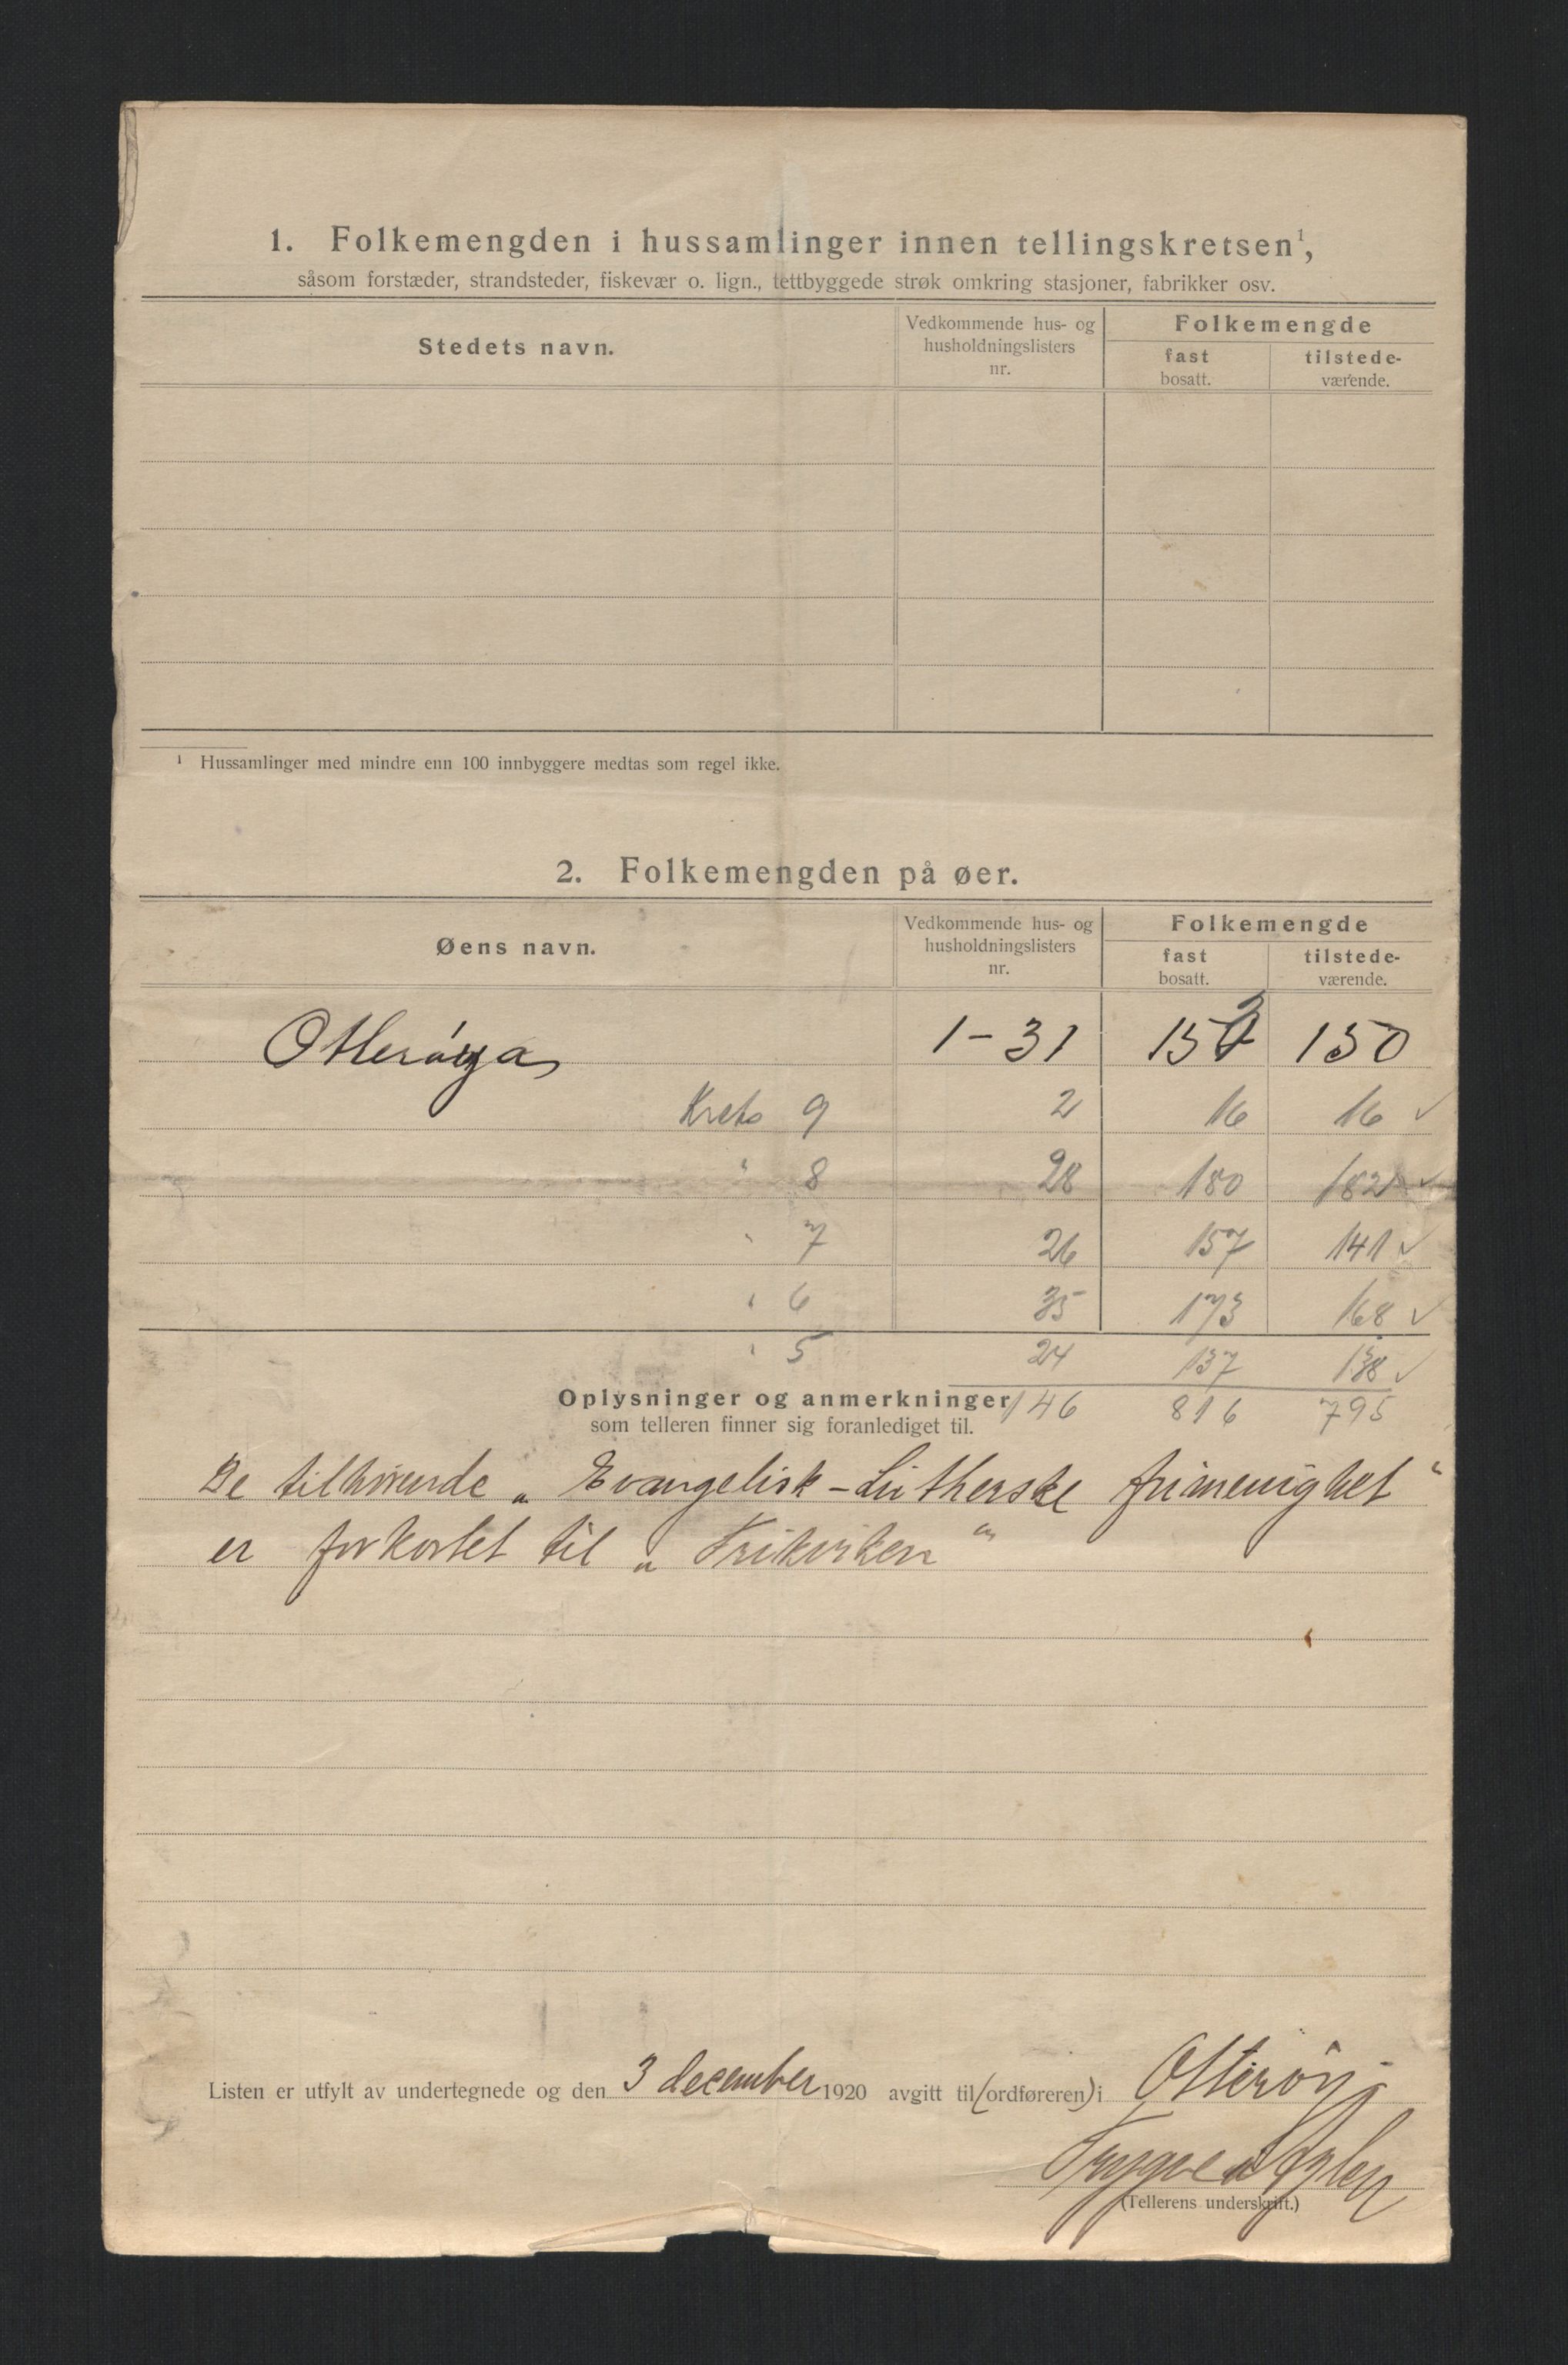 1. Folkemengden i hussamlinger innen tellingskretsen¹,
såsom forstæder, strandsteder, fiskevær o. lign., tettbyggede strøk omkring stasjoner, fabrikker osv.
Stedets navn.
Vedkommende hus- og husholdningslisters nr.
Folkemengde
fast bosatt.
tilstede-værende.
¹ Hussamlinger med mindre enn 100 innbyggere medtas som regel ikke.
2. Folkemengden på øer.
Øens navn.
Vedkommende hus- og husholdningslisters nr.
Folkemengde
fast bosatt.
tilstede-værende.
Otterøya 1-31 153 150
Krets 9 2 16 16 ✓
" 8 28 180 182 ✓
" 7 26 157 141 ✓
" 6 35 173 168 ✓
" 5 24 137 138 ✓
146 816 795
Oplysninger og anmerkninger
som telleren finner sig foranlediget til.
De tilhørende „Evangelisk-Lutherske frimenighet"
er forkortet til „Frikirken"
Listen er utfylt av undertegnede og den 3 december 1920 avgitt til (ordføreren) i Otterøy
Trygve
(Tellerens underskrift.)